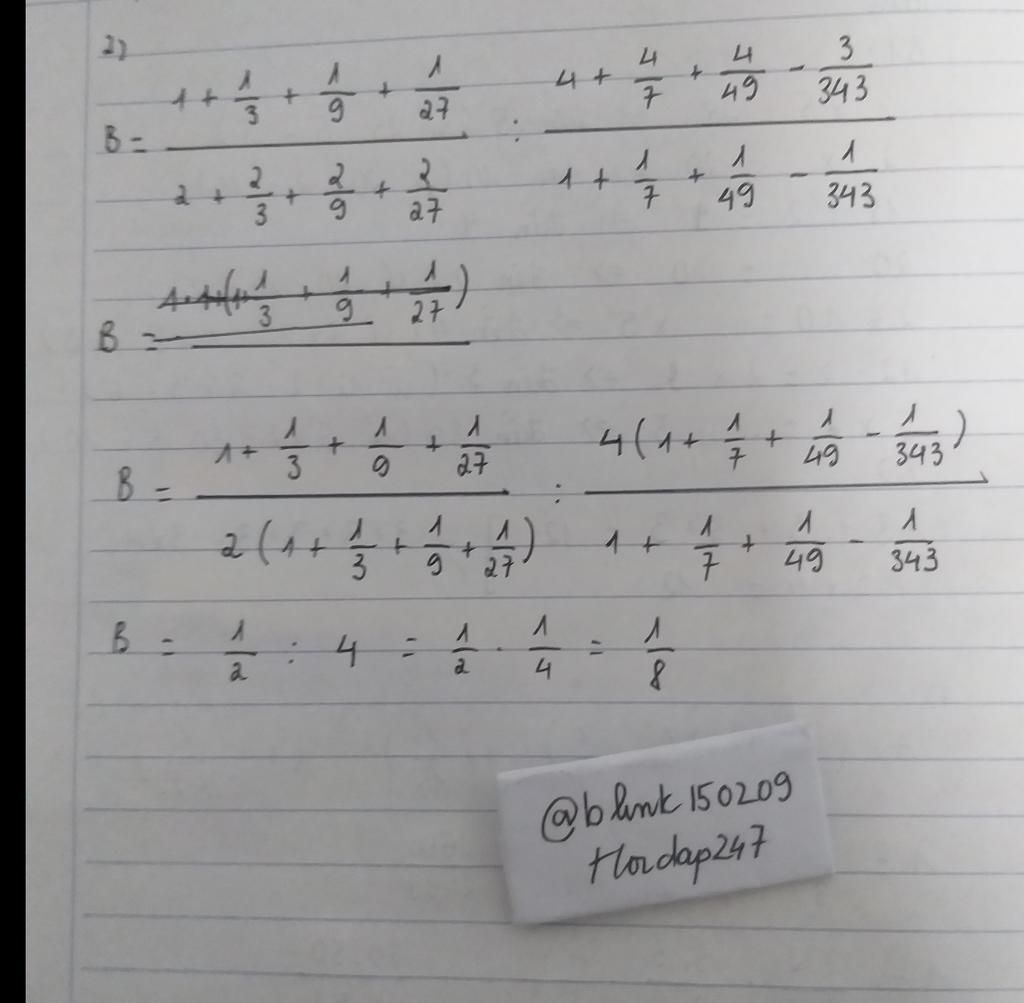 2)
B = (1 + 1/3 + 1/9 + 1/27)/(2 + 2/3 + 2/9 + 2/27) : (4 + 4/7 + 4/49 - 3/343)/(1 + 1/7 + 1/49 - 1/343)
B = 1/3 + 1/9 + 1/27)
B = (1 + 1/3 + 1/9 + 1/27)/(2(1 + 1/3 + 1/9 + 1/27)) : (4(1 + 1/7 + 1/49 - 1/343))/(1 + 1/7 + 1/49 - 1/343)
B = 1/2 : 4 = 1/2 . 1/4 = 1/8
@blink150209
Hoidap247